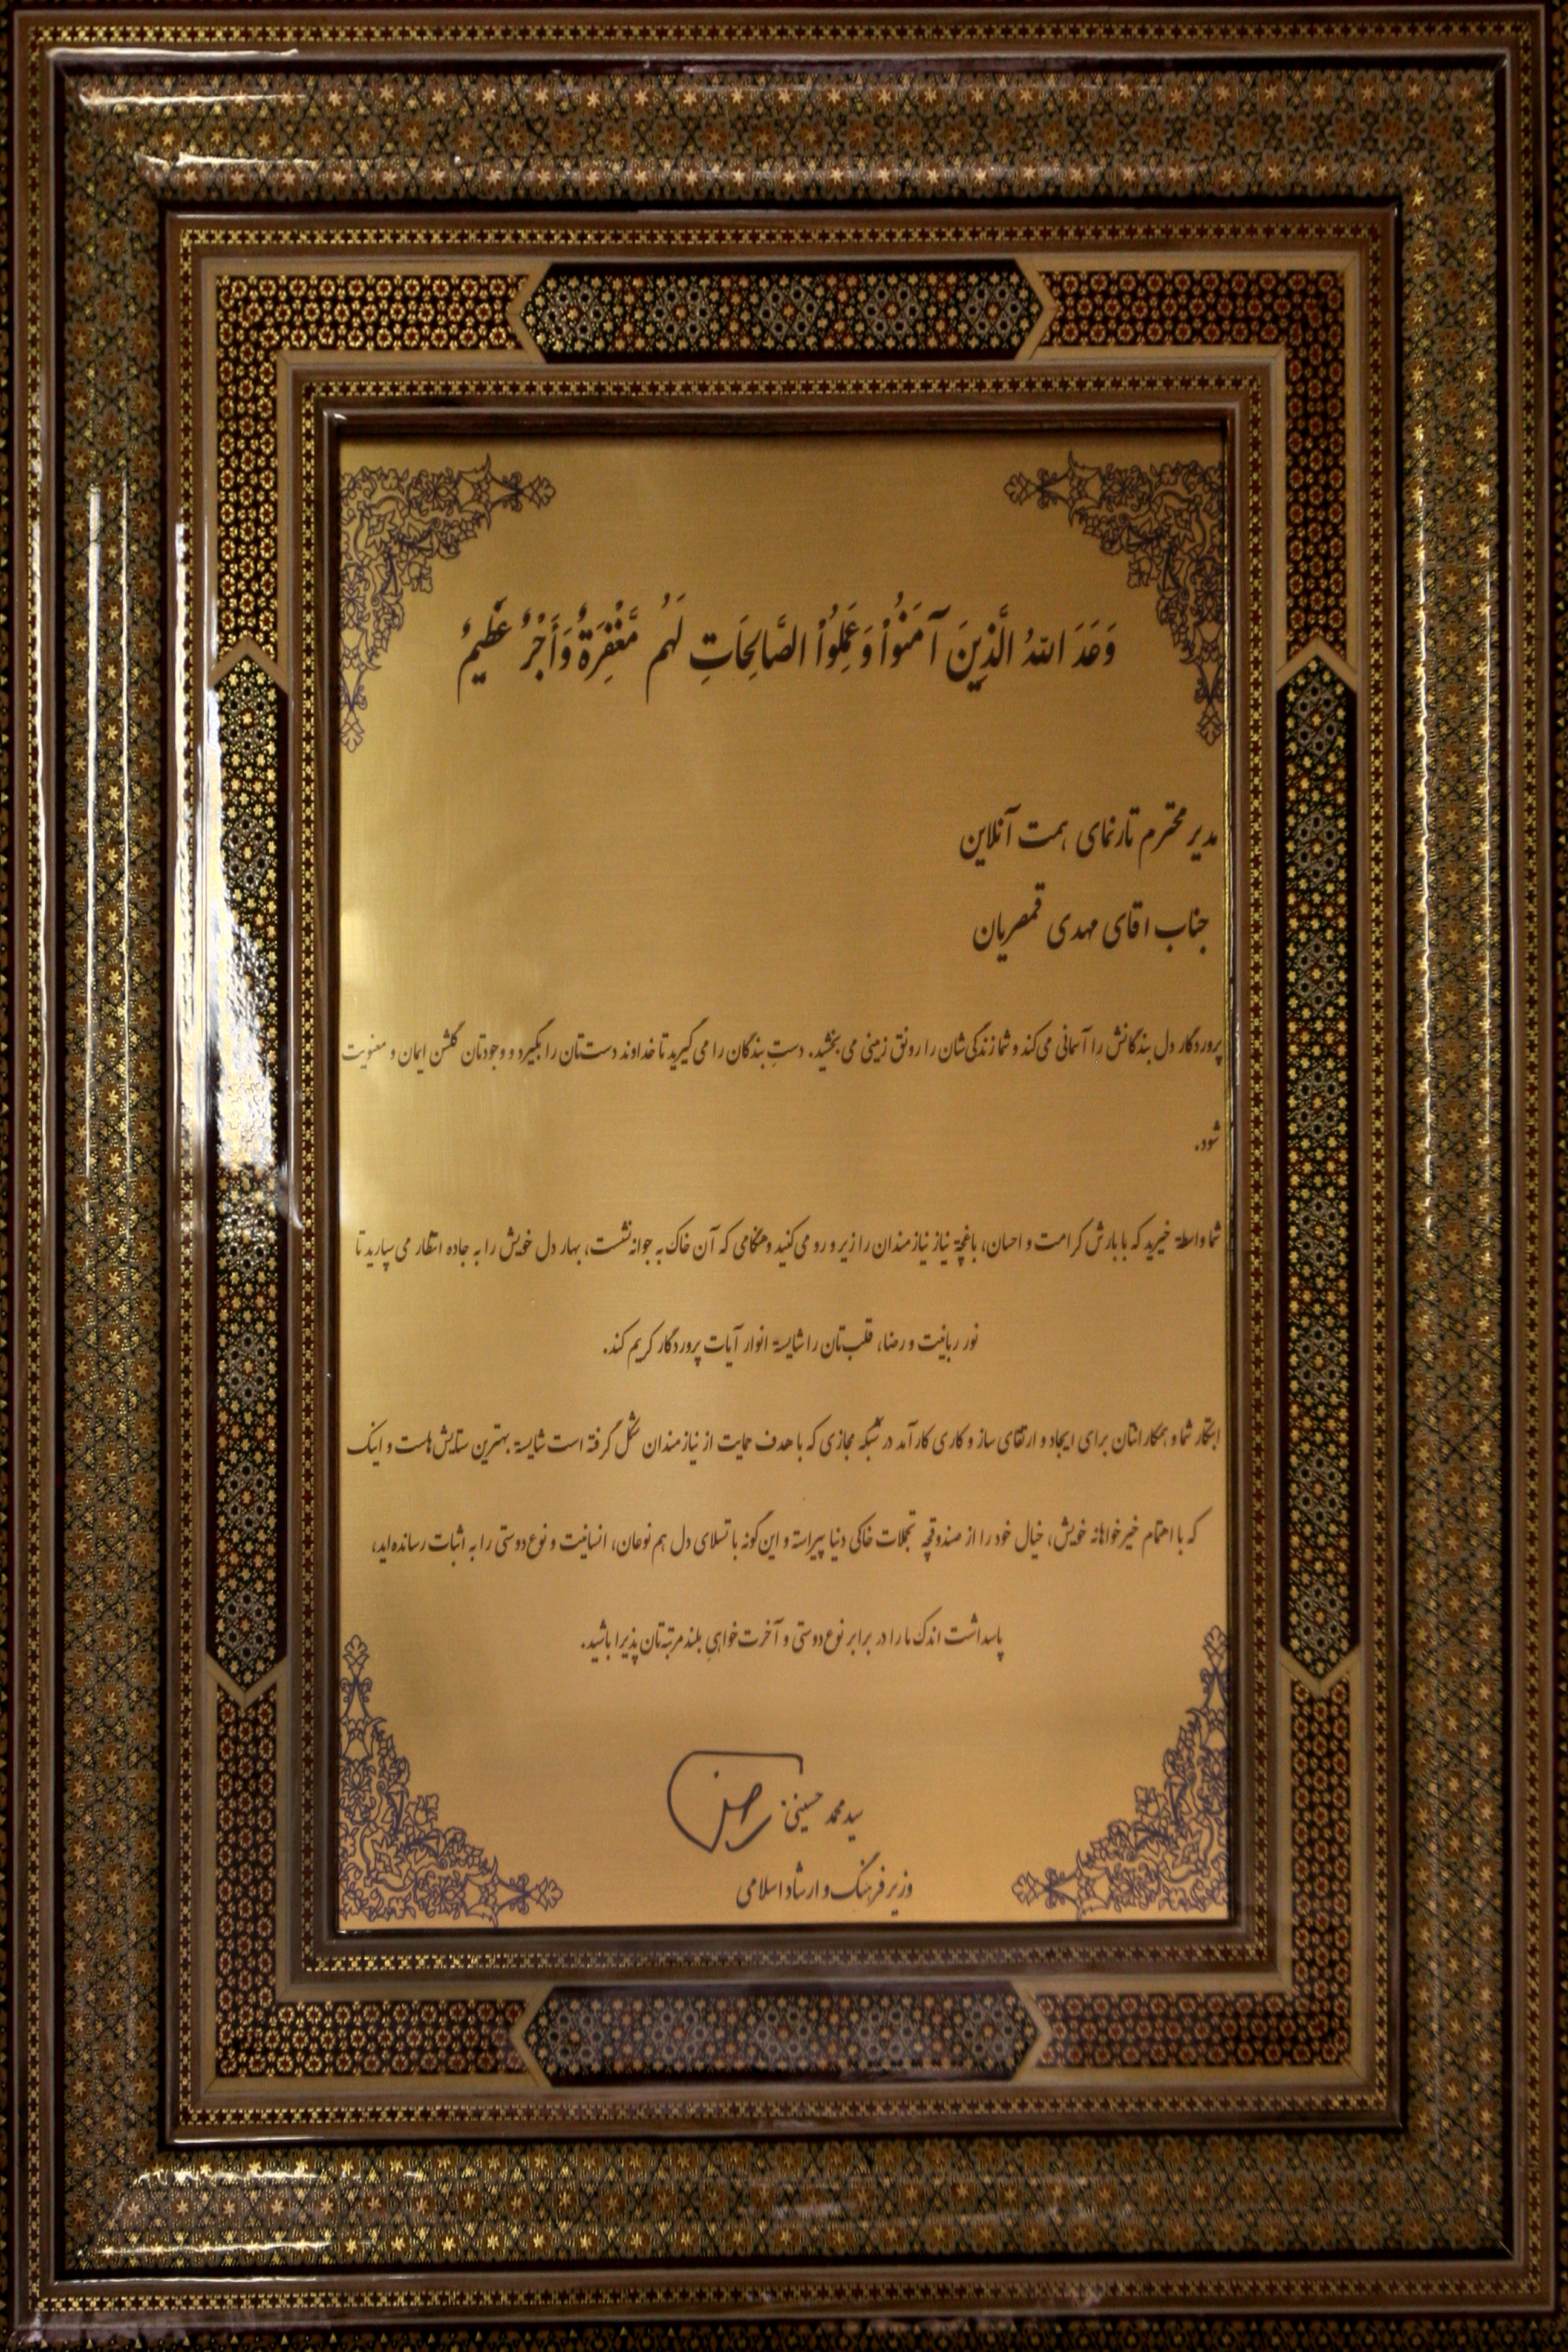 وَعَدَ اللهُ الَّذِينَ آمَنُواْ وَعَمِلُواْ الصَّالِحَاتِ لَهُم مَّغْفِرَةٌ وَأَجْرٌ عَظِيمٌ
مدیر محترم تارنمای همت آنلاین
جناب اقای مهدی قمصریان
پروردگار دل بندگانش را آسمانی می‌کند و شما زندگی‌شان را رونق زمینی می‌بخشید. دستِ بندگان را می‌گیرید تا خداوند دست‌تان را بگیرد و وجودتان گلشن ایمان و معنویت
شود.
شما واسطهٔ خیرید که با بارش کرامت و احسان، باغچهٔ نیاز نیازمندان را زیر و رو می‌کنید و هنگامی که آن خاک به جوانه نشست، بهار دل خویش را به جاده انتظار می‌سپارید تا
نور ربانیت و رضا، قلب‌تان را شایستهٔ انوار آیات پروردگار کریم کند.
ابتکار شما و همکارانتان برای ایجاد و ارتقای ساز و کاری کارآمد در شبکه مجازی که با هدف حمایت از نیازمندان شکل گرفته است شایستهٔ بهترین ستایش‌هاست و اینک
که با اهتمام خیرخواهانه خویش، خیال خود را از صندوقچه تجملات خاکی دنیا پیراسته و این‌گونه با تسلای دل هم‌نوعان، انسانیت و نوع‌دوستی را به اثبات رسانده‌اید،
پاسداشت اندک ما را در برابر نوع‌دوستی و آخرت‌خواهیِ بلندمرتبه‌تان پذیرا باشید.
سید محمد حسینی
وزیر فرهنگ و ارشاد اسلامی